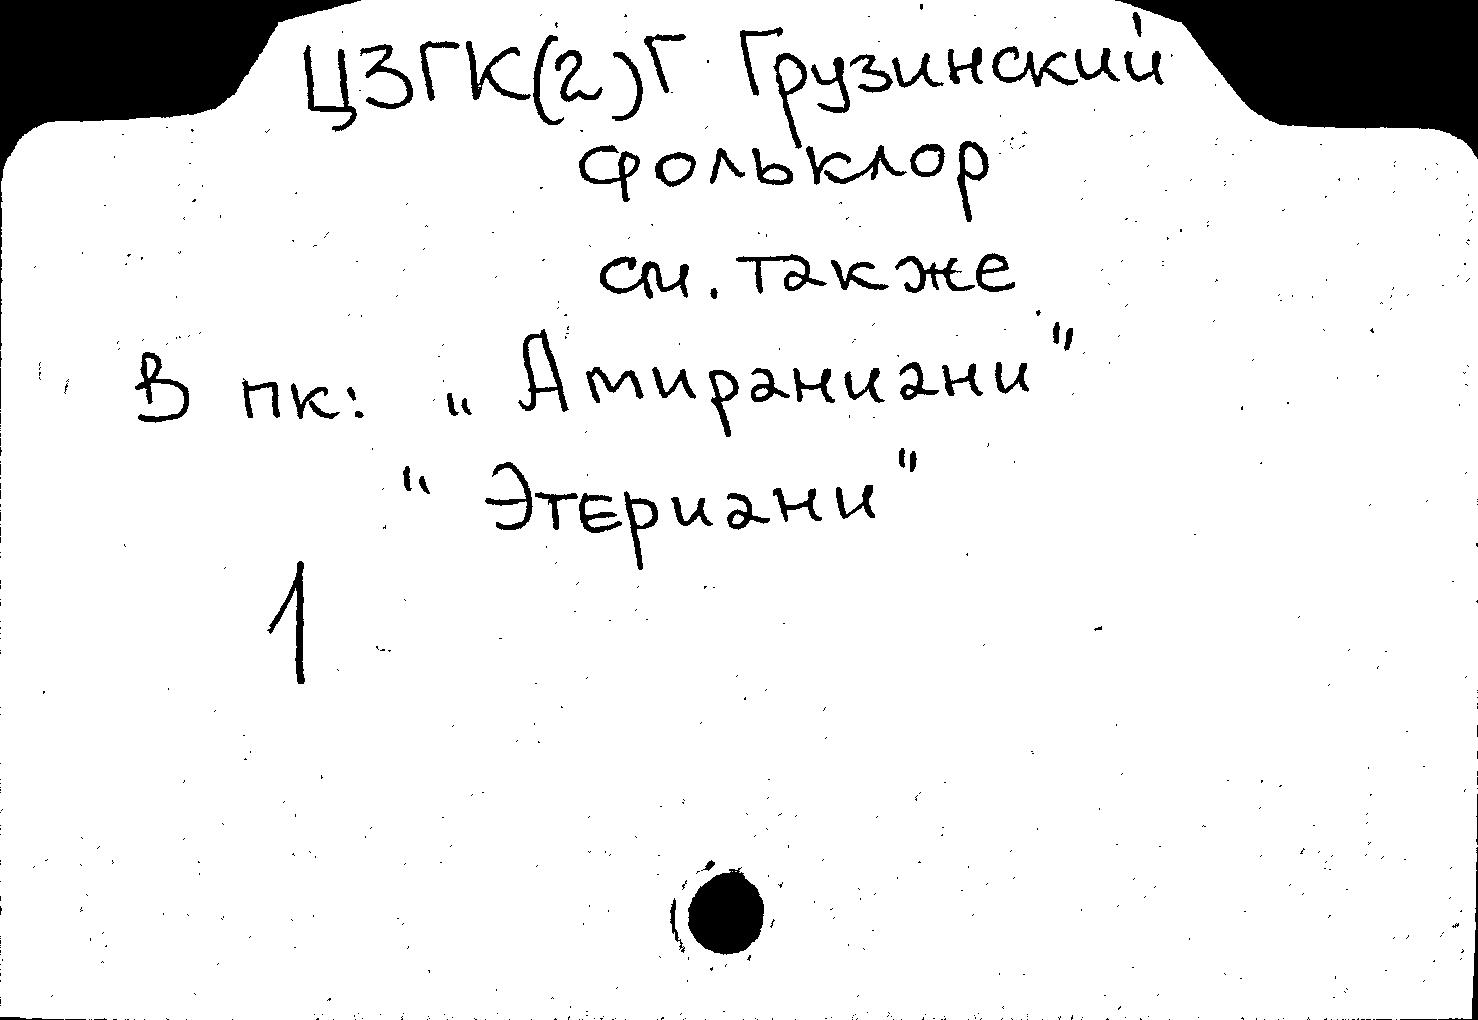 ЦЗГК(2)Г Грузинский
фольклор
см. также
В пк: „Амираниани"
"Этериани"
1